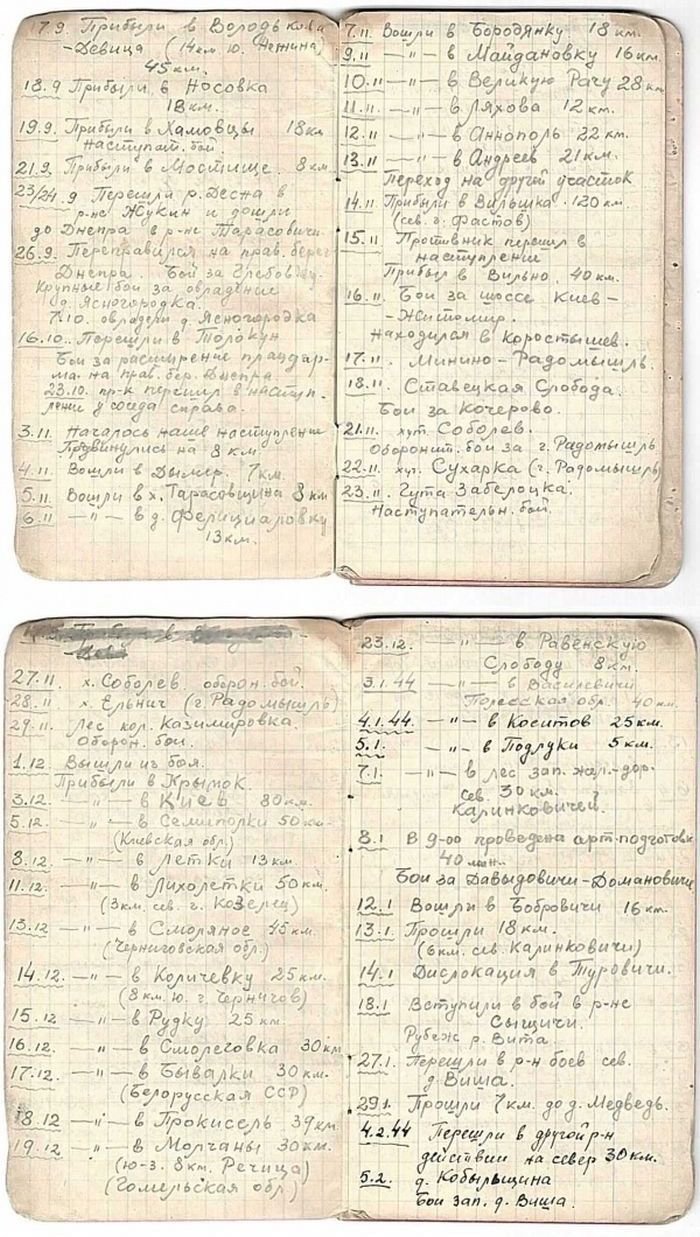 17.9. Прибыли в Володькова
-Девица (14 км ю. Нежина)
45 км.
18.9 Прибыли в Носовка
18 км.
19.9. Прибыли в Хамовцы 18 км
наступат. бой.
21.9. Прибыли в Мостище. 8 км.
23/24.9 Перешли р. Десна в
р-не Жукин и дошли
до Днепра в р-не Тарасовичи.
26.9. Переправился на прав. берег
Днепра. Бои за Глебовку-
Крупные бои за овладение
д. Ясногородка.
7.10. овладели д. Ясногородка
16.10. Перешли в Толокун
Бои за расширение плацдар-
ма на прав. бер. Днепра.
23.10. пр-к перешел в наступ-
ление у соседа справа.
3.11. Началось наше наступление
Продвинулись на 8 км.
4.11. Вошли в Дымер. 7 км.
5.11 Вошли в х. Тарасовщина 8 км
6.11 —"— в д. Фелициаловку
13 км.
7.11. Вошли в Бородянку 18 км.
9.11 —"— в Майдановку 16 км.
10.11 —"— в Великую Рачу 28 км
11.11. —"— в Ляхова 12 км.
12.11 —"— в Аннополь 22 км.
13.11 —"— в Андреев 21 км.
Переход на другой участок
14.11 Прибыли в Вильшка. 120 км
(сев. г. Фастов)
15.11 Противник перешел в
наступление
Прибыл в Вильно. 40 км.
16.11. Бои за шоссе Киев-
-Житомир.
Находился в Коростышев.
17.11. Минино-Радомышль.
18.11. Ставецкая Слобода.
Бои за Кочерово.
21.11. хут. Соболев.
Оборонит. бои за г. Радомышль
22.11. хут. Сухарка (г. Радомышль)
23.11. Гута Забелоцка.
Наступательн. бой.
27.11. х. Соболев. оборон. бой.
28.11. х. Ельнич (г. Радомышль)
29.11. Лес кол. Казимировка.
Оборон. бои.
1.12. Вышли из боя.
Прибыли в Крымок.
3.12. —"— в Киев 80 км.
5.12. —"— в Семиполки 50 км.
(Киевская обл.)
8.12. —"— в Летки 13 км.
11.12. —"— в Лихолетки 50 км.
(3 км. сев. г. Козелец)
13.12 —"— в Смоляное 45 км.
(Черниговская обл.)
14.12. —"— в Количевку 25 км.
(8 км. ю. г. Чернигов)
15.12 —"— в Рудку 25 км.
16.12 —"— в Смолеговка 30 км
17.12. —"— в Бывалки 30 км.
(Белорусская ССР)
18.12 —"— в Прокисель 39 км.
19.12 —"— в Молчаны 30 км.
(ю-з. 8 км. Речица)
(Гомельская обл.)
23.12. —"— в Равенскую
Слободу 8 км.
3.1.44 —"— в Василевичи
Полесская обл. 40 км.
4.1.44. —"— в Коситов 25 км.
5.1. —"— в Подлуки 5 км.
7.1. —"— в лес зап. жел.-дор.
сев. 30 км.
Калинковичей.
8.1 В 9-00 проведена арт-подготовк
40 мин.
Бои за Давыдовичи-Домановичи
12.1 Вошли в Бобровичи 16 км.
13.1. Прошли 18 км.
(6 км. сев. Калинковичи)
14.1 Дислокация в Туровичи.
18.1 Вступили в бой в р-не
Сыщичи.
Рубеж р. Вита.
27.1. Перешли в р-н боев сев.
д. Виша.
29.1. Прошли 7 км. до д. Медведь.
4.2.44 Перешли в другой р-н
действии на север 30 км.
5.2. д. Кобыльщина
Бои зап. д. Виша.